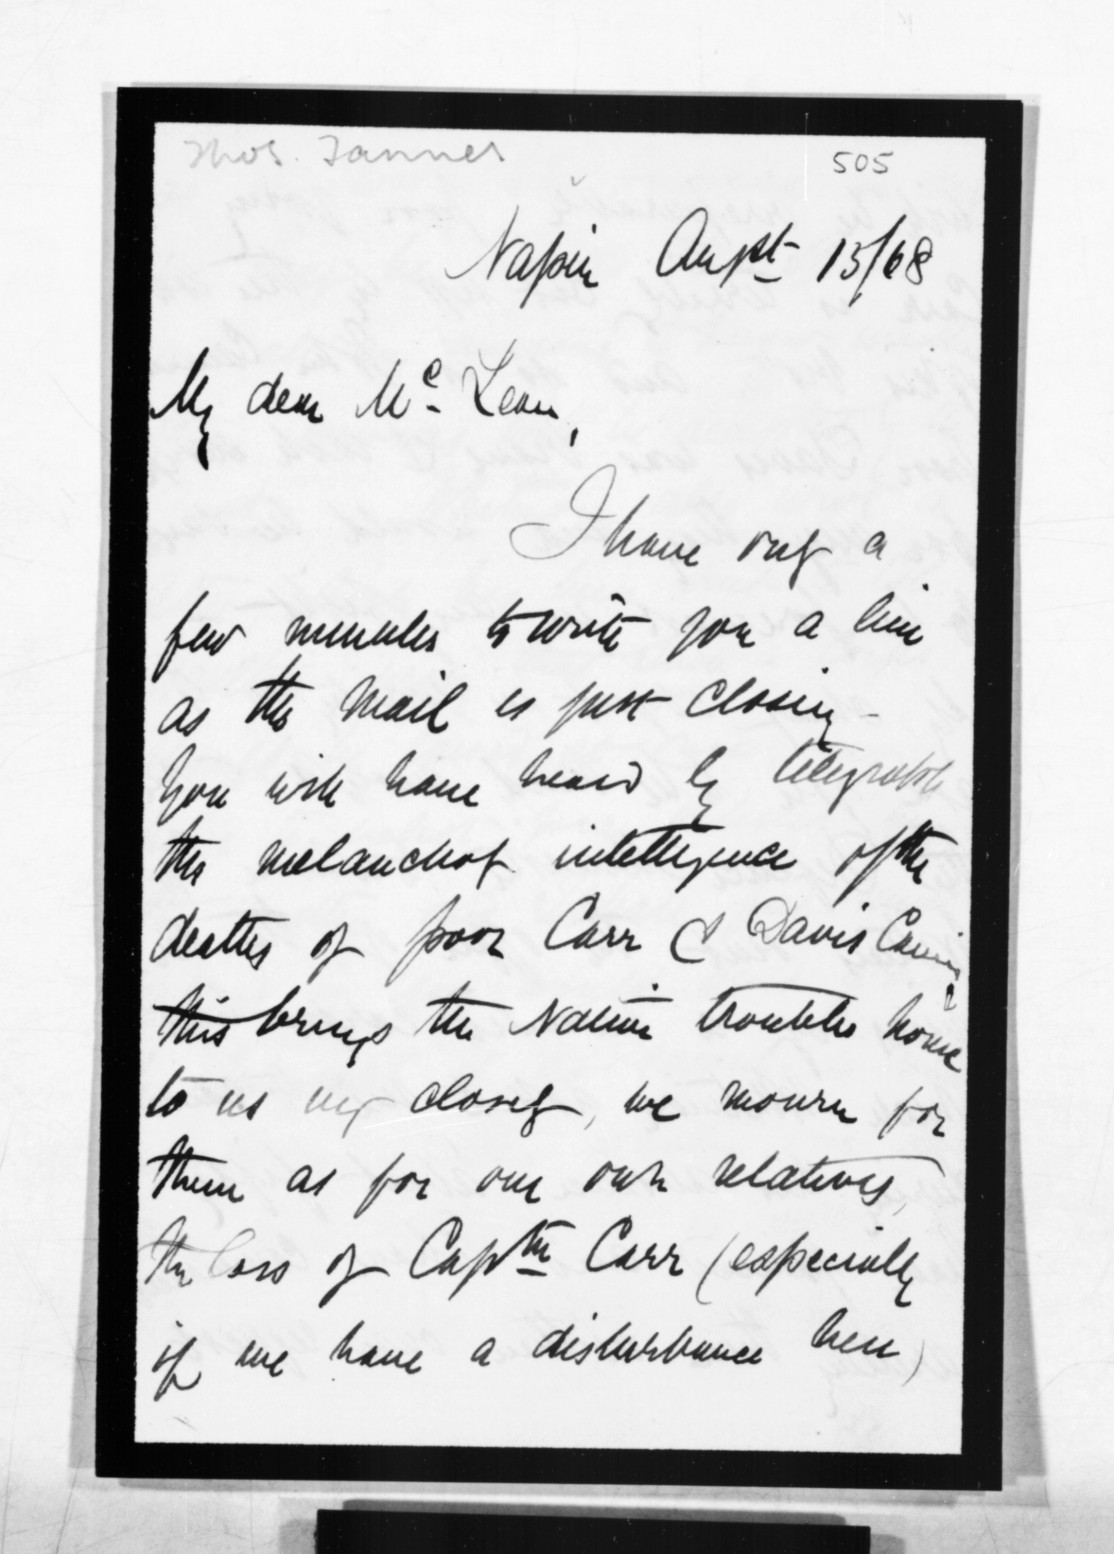 Thos. Tanner
505
Napier Augst 15/68
My dear Mc Lean,
I have only a
few minutes to write you a line
as the mail is just closing -
You will have heard by telegraph
the melancholy intelligence of the
deaths of poor Carr & Davis Canning
this brings the Native troubles home
to us very closely, we mourn for
them as for our own relatives,
the loss of Captn Carr (especially
if we have a disturbance here)